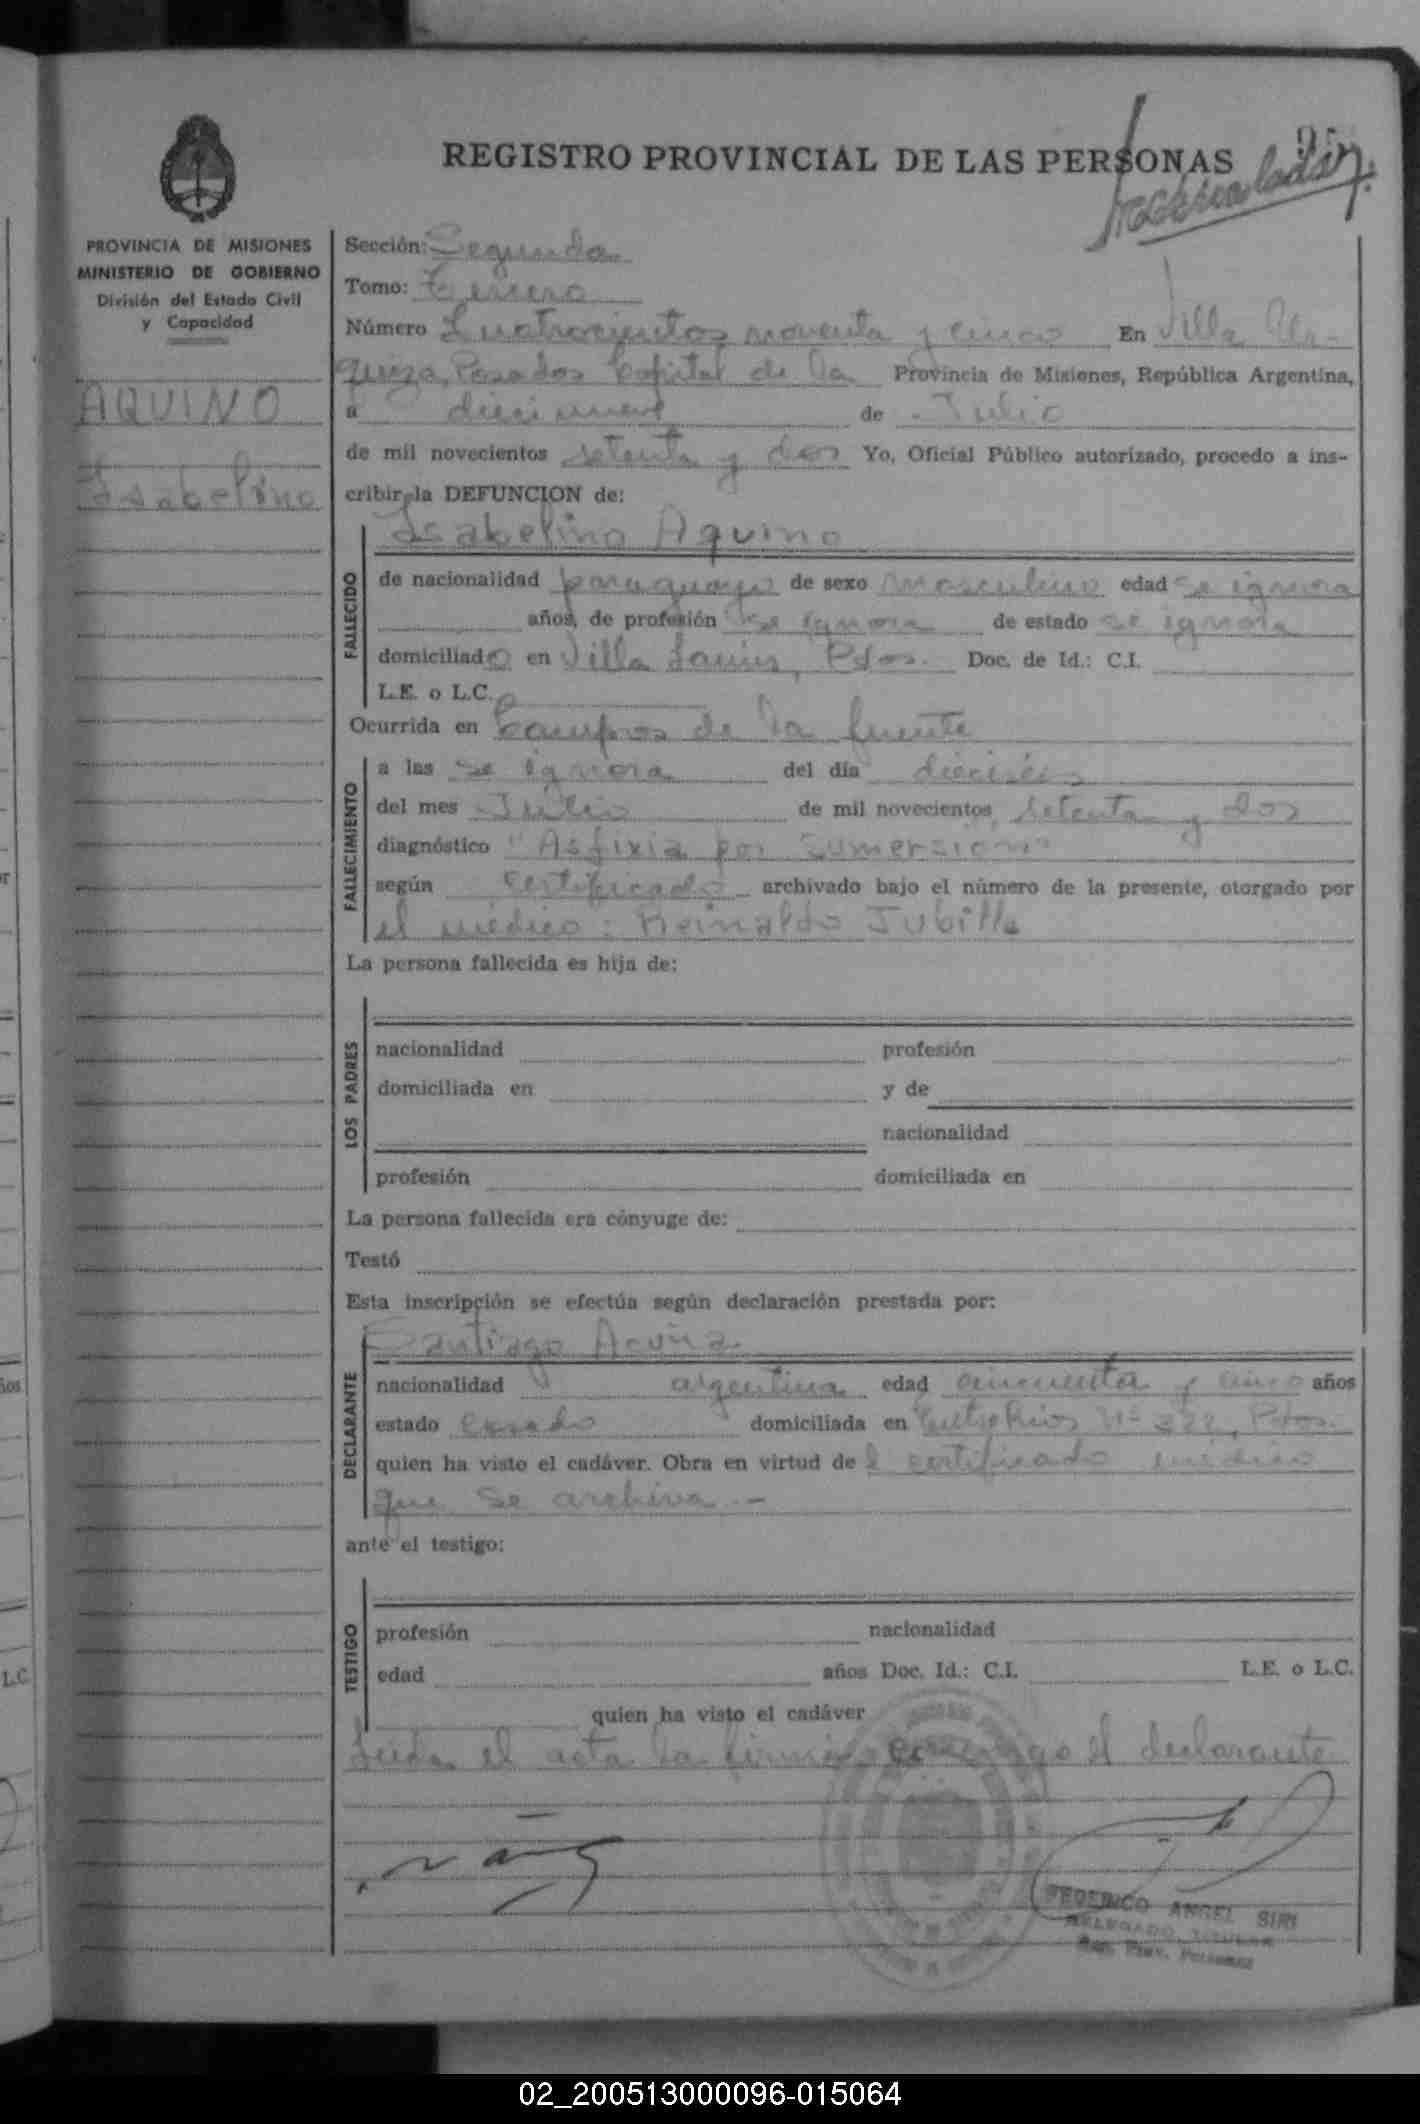 REGISTRO PROVINCIAL DE LAS PERSONAS
PROVINCIA DE MISIONES
MINISTERIO DE GOBIERNO
División del Estado Civil
y Capacidad
AQUINO
Isabelino
Sección: Segunda
Tomo: Tercero
Número Cuatrocientos noventa y cinco En Villa Ur-
quiza, Posadas Capital de la Provincia de Misiones, República Argentina,
a diecinueve de Julio
de mil novecientos setenta y dos Yo, Oficial Público autorizado, procedo a ins-
cribir la DEFUNCION de:
Isabelino Aquino
FALLECIDO
de nacionalidad paraguayo de sexo masculino edad se ignora
años, de profesión se ignora de estado se ignora
domiciliado en Villa Lanús, Pdas. Doc. de Id.: C.I.
L.E. o L.C.
Ocurrida en Campos de la fuente
FALLECIMIENTO
a las se ignora del día dieciséis
del mes Julio de mil novecientos setenta y dos
diagnóstico "Asfixia por sumersión"
según certificado archivado bajo el número de la presente, otorgado por
el médico: Reinaldo
La persona fallecida es hija de:
LOS PADRES
nacionalidad profesión
domiciliada en y de
nacionalidad
profesión domiciliada en
La persona fallecida era cónyuge de:
Testó
Esta inscripción se efectúa según declaración prestada por:
Santiago Acuña
DECLARANTE
nacionalidad argentina edad cincuenta y cinco años
estado casado domiciliada en Entre Rios Nº Pdas.
quien ha visto el cadáver. Obra en virtud del certificado médico
que se archiva.-
ante el testigo:
TESTIGO
profesión nacionalidad
edad años Doc. Id.: C.I. L.E. o L.C.
quien ha visto el cadáver
Leída el acta la firma conmigo el declarante
FEDERICO ANGEL SIRI
DELEGADO TITULAR
Reg. Prov. Personas
02_200513000096-015064